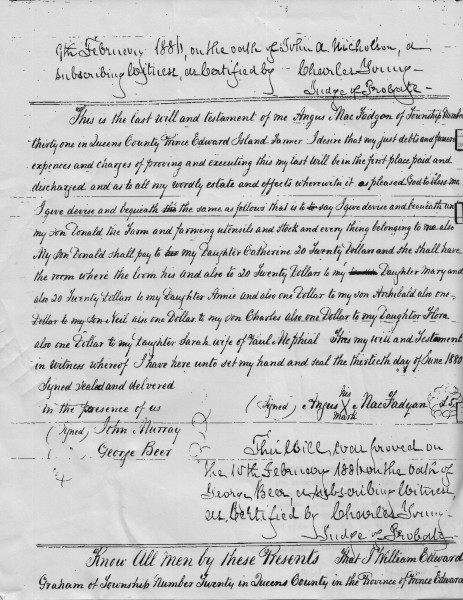 9th February 1881, on the oath of John A. Nicholson, a
subscribing Witness, as Certified by Charles Young
Judge of Probate
This is the last will and testament of me Angus Mac Fadyon of Township Number
thirty one in Queens County Prince Edward Island Farmer I desire that my just debts and funeral
expences and charges of proving and executing this my last will be in the first place paid and
discharged and as to all my wordly estate and effects wherewith it as pleased God to bless me
I give devise and bequeath the same as follows that is to say I give devise and bequeath unto
my son Donald the Farm and farming utensils and stock and every thing belonging to me also
My son Donald shall pay to my Daughter Catherine 20 Twenty Dollars and she shall have
the room where the loom his and also to 20 Twenty Dollars to my Daughter Mary and
also 20 Twenty Dollars to my Daughter Annie and also one Dollar to my son Archibald also one
Dollar to my son Neil also one Dollar to my son Charles also one Dollar to my Daughter Flora
also one Dollar to my Daughter Sarah wife of Paul Mcphial this my will and Testament
in witness whereof I have here unto set my hand and seal the thirtieth day of June 1880
Signed sealed and delivered
in the presence of us
(Signed) Angus his X mark Mac Fadyan L.S.
(Signed) John Murray
( " ) George Beer
This Will was proved on
the 10th February 1881 on the oath of
George Beer, a subscribing Witness,
as Certified by Charles Young
Judge of Probate
Know All men by these Presents That I William Edward
Graham of Township Number Twenty in Queens County in the Province of Prince Edward